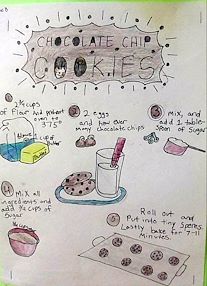 CHOCOLATE CHIP
COOKIES
2 ¾ cups
of flour and preheat
oven to
375°
2 eggs
and how ever
many chocolate chips
3 Mix, and
add 1 table-
spoon of sugar
4 Mix all
ingredients and
add ¾ cups of
Sugar
Roll out and
Put into tiny spheres.
Lastly bake for 7-11
Minutes.